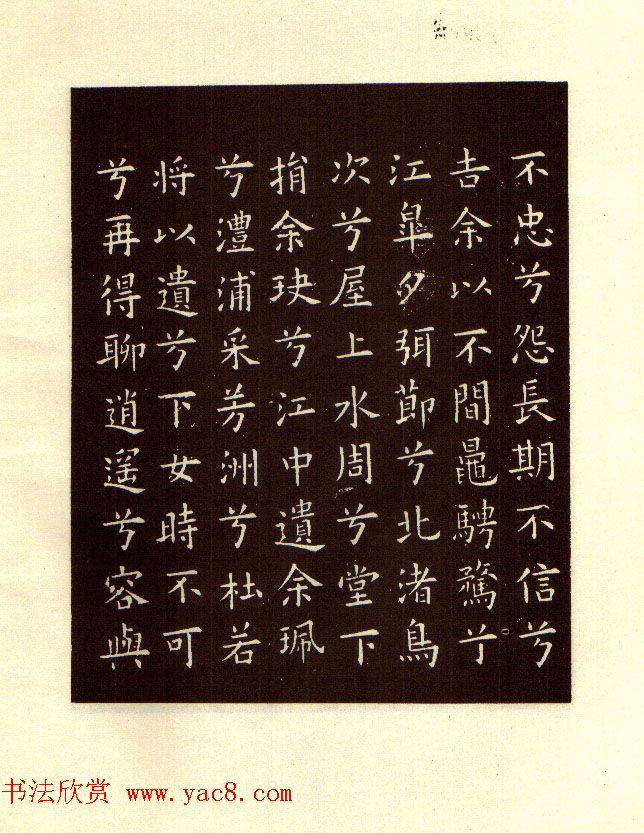 不忠兮怨長期不信兮
告余以不間鼂騁騖亍
江皐夕弭節兮北渚鳥
次兮屋上水周兮堂下
捐余玦兮江中遺余珮
兮澧浦采芳洲兮杜若
將以遺兮下女時不可
兮再得聊逍遥兮容與
书法欣赏 www.yac8.com